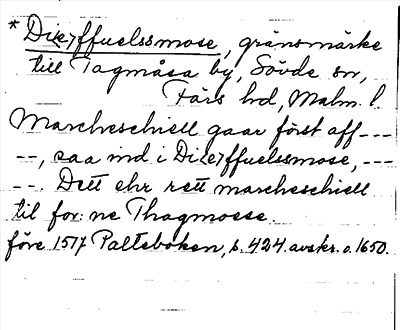 * Di<e>ffuelssmose, gränsmärke
till Tagmåsa by, Sövde sn,
Färs hd, Malm. l.
Marcheschiell gaar först aff ---
--, saa ind i Di<e>ffuelssmose, ---
--. Dett ehr rett marcheschiell
til for: ne Thagmoese.
före 1517 Palteboken, s. 424. avskr. o. 1650.